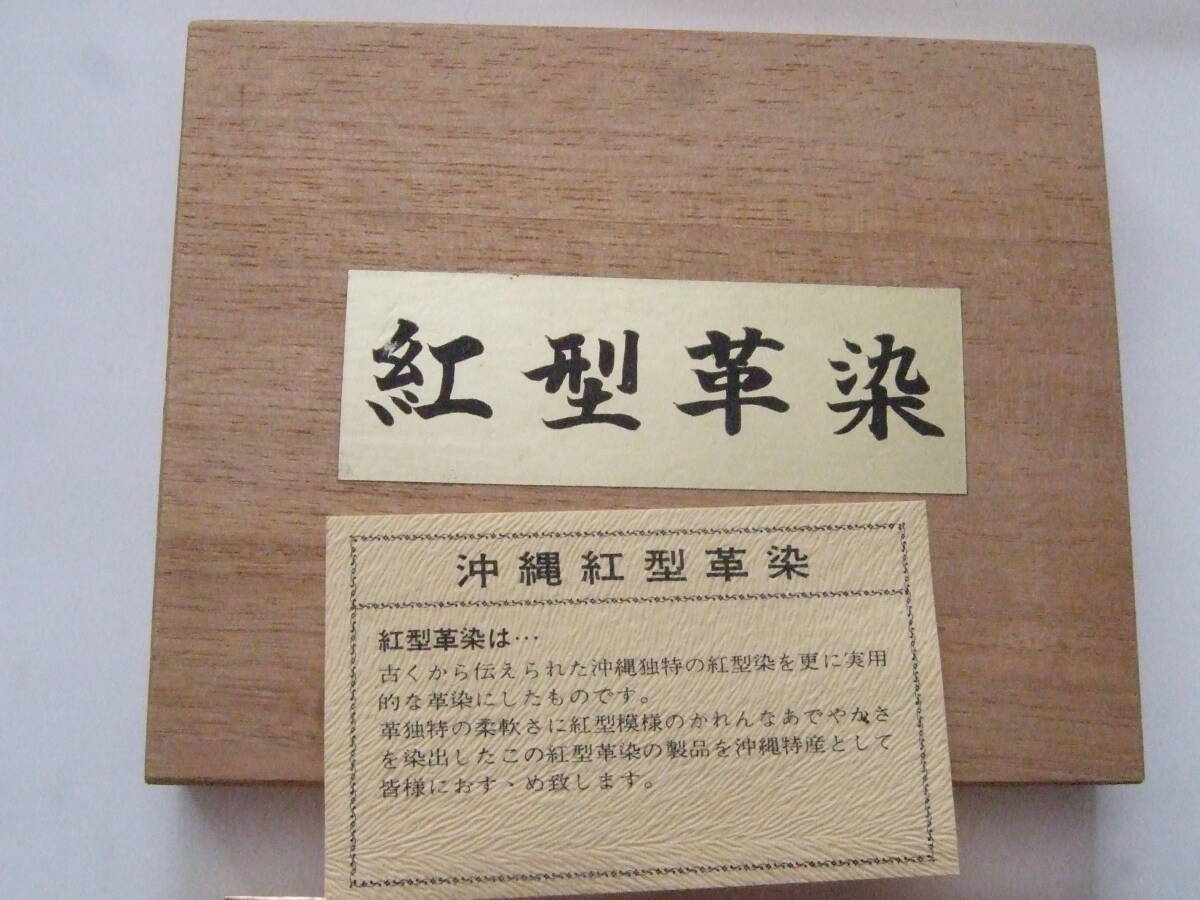 紅型革染
沖縄紅型革染
紅型革染は…
古くから伝えられた沖縄独特の紅型染を更に実用
的な革染にしたものです。
革独特の柔軟さに紅型模様のかれんなあでやかさ
を染出したこの紅型革染の製品を沖縄特産として
皆様におすヽめ致します。